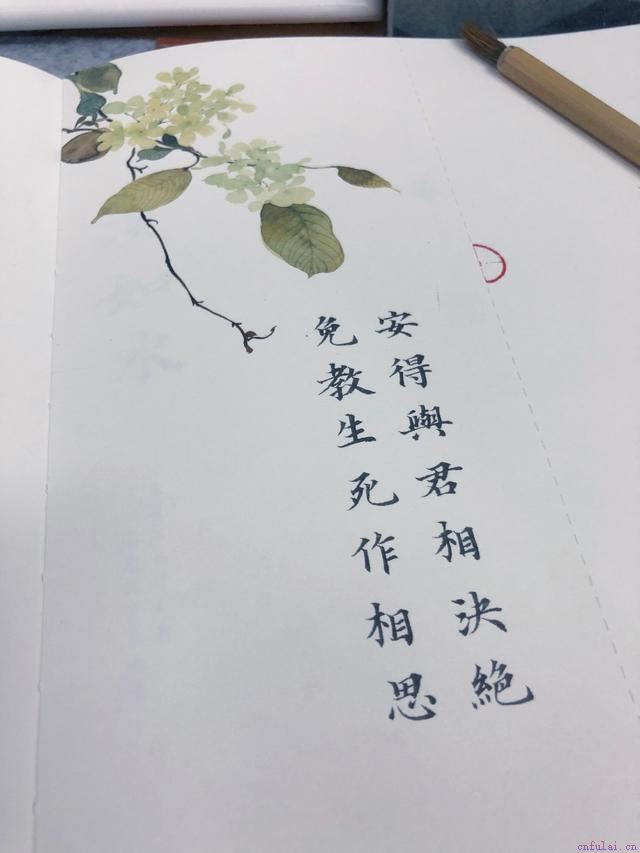 安得與君相決絶
免教生死作相思
cnfulai.cn